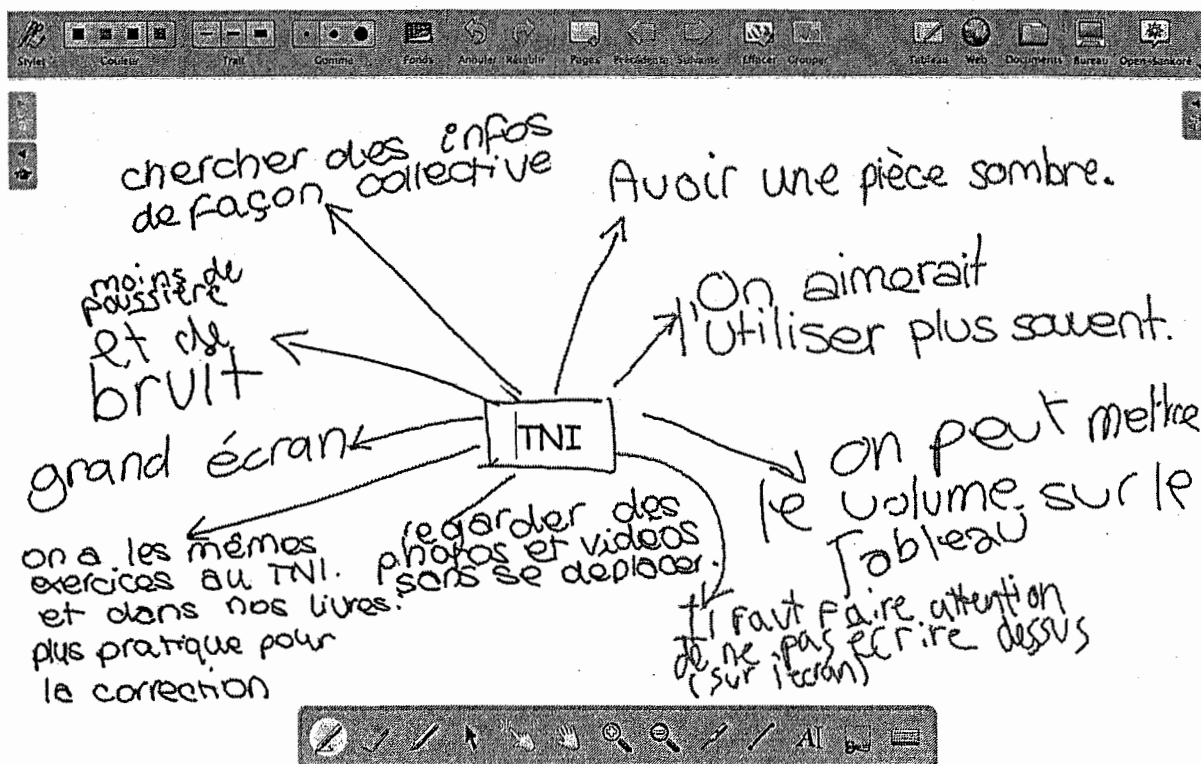 Styles
Couleur
Trait
Gomme
Fonds
Annuler
Rétablir
Pages
Précédente
Suivante
Effacer
Grouper
Tableau
Web
Documents
Bureau
Open-Sankoré
chercher des infos
de façon collective
Avoir une pièce sombre.
moins de
poussière
et de
bruit
On aimerait
l'utiliser plus souvent.
TNI
grand écran
on peut mettre
le volume sur le
Tableau
on a les mêmes
exercices au TNI.
et dans nos livres.
plus pratique pour
la correction
regarder des
photos et vidéos
sans se déplacer.
Il faut faire attention
de ne pas écrire dessus
(sur l'écran)
AI